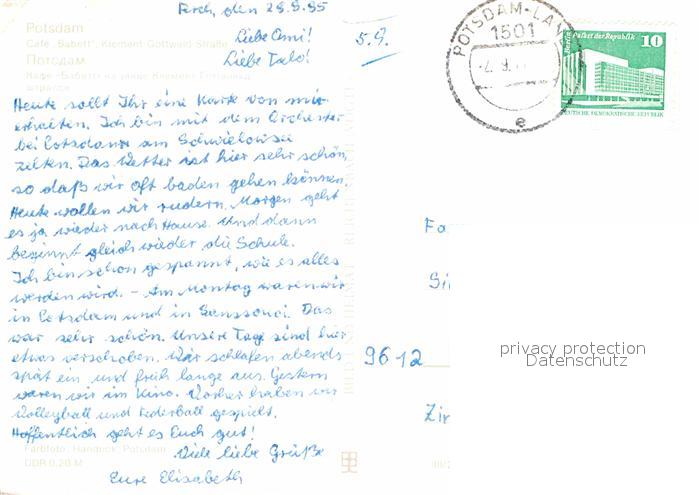 Ferch, den 28.8.85
Potsdam
Liebe Omi!
5.9.
Café „Babett", Klement-Gottwald-Straße
Liebe Talo!
Потсдам
Кафе «Бабетт» на улице Клемент-Готвальд-
штрассе
Heute sollt Ihr eine Karte von mir
erhalten. Ich bin mit dem Orchester
bei Potsdam am Schwielowsee
zelten. Das Wetter ist hier sehr schön,
so daß wir oft baden gehen können.
Heute wollen wir rudern. Morgen geht
es ja wieder nach Hause. Und dann
beginnt gleich wieder die Schule.
Ich bin schon gespannt, wie es alles
werden wird. – Am Montag waren wir
in Potsdam und in Sanssouci. Das
war sehr schön. Unsere Tage sind hier
etwas verschoben. Wir schlafen abends
spät ein und früh lange aus. Gestern
waren wir im Kino. Vorher haben wir
Volleyball und Federball gespielt.
Hoffentlich geht es Euch gut!
Farbfoto: Handrick, Potsdam
Viele liebe Grüße
DDR 0,20 M
Eure Elisabeth
POTSDAM-LAN
1501
e
Berlin Palast der Republik
10
DEUTSCHE DEMOKRATISCHE REPUBLIK
Fa
9612
privacy protection
Datenschutz